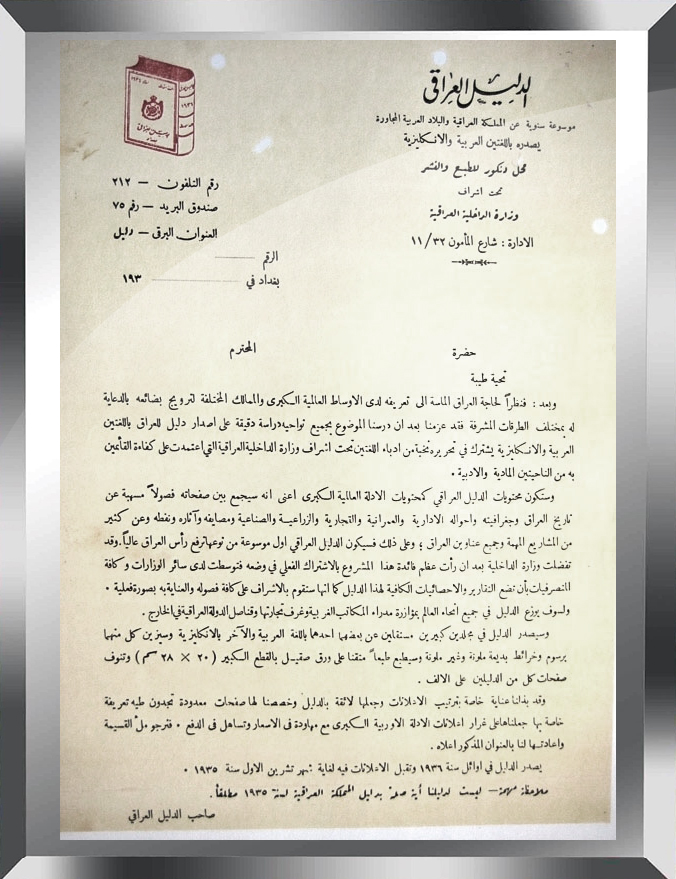 الدليل العراقي
موسوعة سنوية عن المملكة العراقية والبلاد العربية المجاورة
يصدره باللغتين العربية والانكليزية
محل دنكور للطبع والنشر
تحت اشراف
وزارة الداخلية العراقية
الادارة : شارع المأمون ٣٢/ ١١
١٩٣٦
رقم التلفون — ٢١٢
صندوق البريد — رقم ٧٥
العنوان البرقي — دليل
الرقم
بغداد في ١٩٣
حضرة المحترم
تحية طيبة
وبعد : فنظراً لحاجة العراق الماسة الى تعريفه لدى الاوساط العالمية الكبرى والممالك المختلفة لترويج بضائعه بالدعاية
له بمختلف الطرقات المشرفة فقد عزمنا بعد ان درسنا الموضوع بجميع نواحيه دراسة دقيقة على اصدار دليل للعراق باللغتين
العربية والانكليزية يشترك في تحريره نخبة من ادباء اللغتين تحت اشراف وزارة الداخلية العراقية التي اعتمدت على كفاءة القائمين
به من الناحيتين المادية والادبية .
وستكون محتويات الدليل العراقي كمحتويات الادلة العالمية الكبرى اعنى انه سيجمع بين صفحاته فصولاً مسهبة عن
تاريخ العراق وجغرافيته واحواله الادارية والعمرانية والتجارية والزراعية والصناعية ومصايفه وآثاره ونفطه وعن كثير
من المشاريع المهمة وجميع عناوين العراق ؛ وعلى ذلك فسيكون الدليل العراقي اول موسوعة من نوعها ترفع رأس العراق عالياً . وقد
تفضلت وزارة الداخلية بعد ان رأت عظم فائدة هذا المشروع بالاشتراك الفعلي في وضعه فتوسطت لدى سائر الوزارات وكافة
المتصرفيات بأن تضع التقارير والاحصائيات الكافية لهذا الدليل كما انها ستقوم بالاشراف على كافة فصوله والعناية به بصورة فعلية .
ولسوف يوزع الدليل في جميع انحاء العالم بمؤازرة مدراء المكاتب الغربية وغرف تجارتها وقناصل الدولة العراقية في الخارج .
وسيصدر الدليل في مجلدين كبيرين مستقلين عن بعضهما احدهما باللغة العربية والآخر بالانكليزية وسيزين كل منهما
برسوم وخرائط بديعة ملونة وغير ملونة وسيطبع طبعاً متقنا على ورق صقيل بالقطع الكبير ( ٢٠ × ٢٨ سم ) وتنوف
صفحات كل من الدليلين على الالف .
وقد بذلنا عناية خاصة بترتيب الاعلانات وجعلها لائقة بالدليل وخصصنا لها صفحات معدودة تجدون طيه تعريفة
خاصة بها جعلناها على غرار اعلانات الادلة الاوربية الكبرى مع مهاودة في الاسعار وتساهل في الدفع . فنرجو ملء القسيمة
واعادتها لنا بالعنوان المذكور اعلاه .
يصدر الدليل في اوائل سنة ١٩٣٦ وتقبل الاعلانات فيه لغاية شهر تشرين الاول سنة ١٩٣٥ .
ملاحظة مهمة — ليست لدليلنا أية صلة بدليل المملكة العراقية لسنة ١٩٣٥ مطلقاً .
صاحب الدليل العراقي